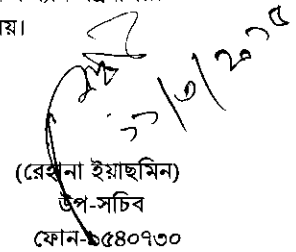 য়।
১১/৩/২০১৫
(রেহানা ইয়াছমিন)
উপ-সচিব
ফোন-৯৫৪০৭৩০